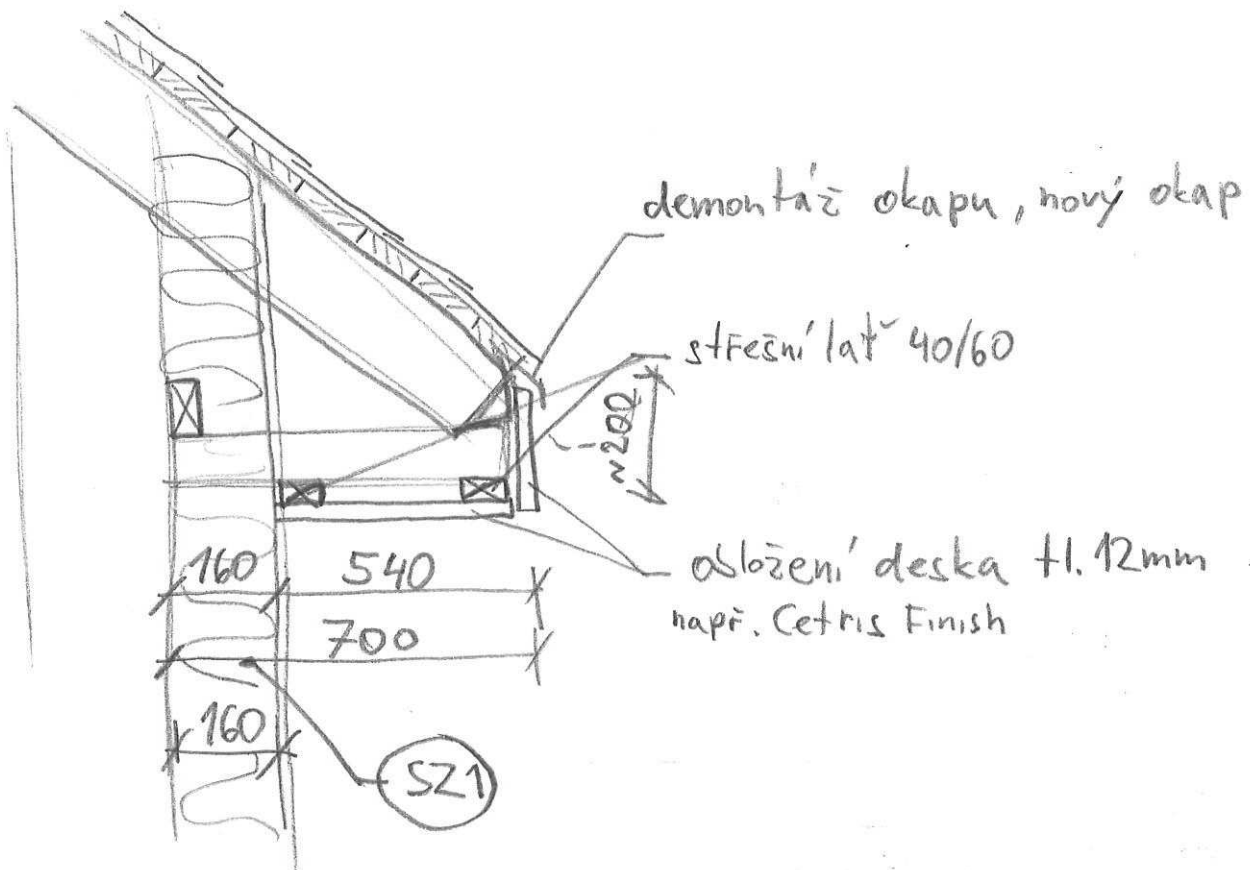 demontáž okapu, nový okap
střešní lať 40/60
~200
obložení deska tl. 12mm
např. Cetris Finish
160 540
700
160
SZ1